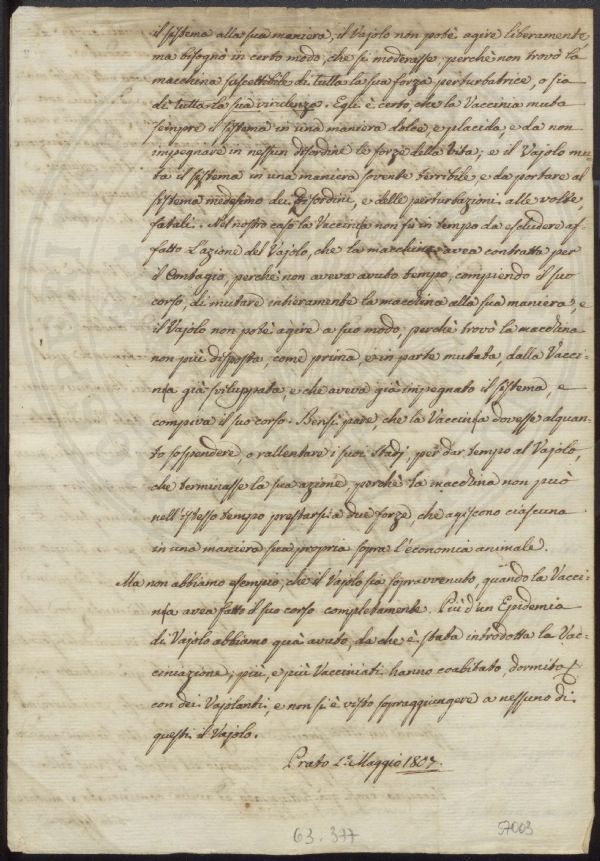 il sistema alla sua maniera, il Vajolo non potè agire liberamente,
ma bisognò in certo modo, che si moderasse, perchè non trovò la
macchina suscettibile di tutta la sua forza perturbatrice, o sia
di tutta la sua virulenza. Egli è certo, che la Vaccinia muta
sempre il sistema in una maniera dolce, e placida, e da non
impegnare in nessun disordine le forze della Vita; e il Vajolo mu=
ta il sistema in una maniera sovente terribile e da portare al
sistema medesimo dei Disordini, e delle perturbazioni alle volte
fatali. Nel nostro caso la Vaccinia non fù in tempo da escludere af=
fatto l'azione del Vajolo, che la macchina avea contratta per
il Contagio, perchè non aveva avuto tempo, compiendo il suo
corso, di mutare intieramente la macchina alla sua maniera, e
il Vajolo non potè agire a suo modo, perchè trovò la macchina
non più disposta, come prima, e in parte mutata, dalla Vacci=
nia già sviluppata, e che aveva già impegnato il sistema, e
compiva il suo corso. Bensì pare, che la Vaccinia dovesse alquan=
to sospendere, o rallentare i suoi stadj, per dar tempo al Vajolo,
che terminasse la sua azione, perchè la macchina non può
nell'istesso tempo prestarsi a due forze, che agiscono ciascuna
in una maniera sua propria sopra l'economia animale.
Ma non abbiamo esempio, che il Vajolo sia sopravvenuto, quando la Vacci=
nia avea fatto il suo corso completamente. Più d'un Epidemia
di Vajolo abbiamo quà avuto, da che è stata introdotta la Vac=
cinazione; più, e più Vacciniati hanno coabitato, dormito
con dei Vajolanti, e non si è visto sopraggiungere a nessuno di
questi il Vajolo.
Prato 2 Maggio 1807.
63.377
57003